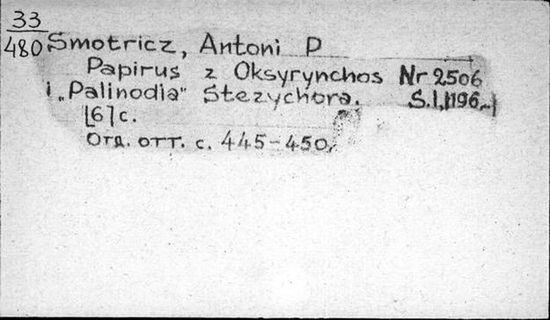 33
480
Smotricz, Antoni P
Papirus z Oksyrynchos Nr 2506
i „Palinodia" Stezychora. S.l, 196..
[6] с.
Отд. отт. с. 445-450.